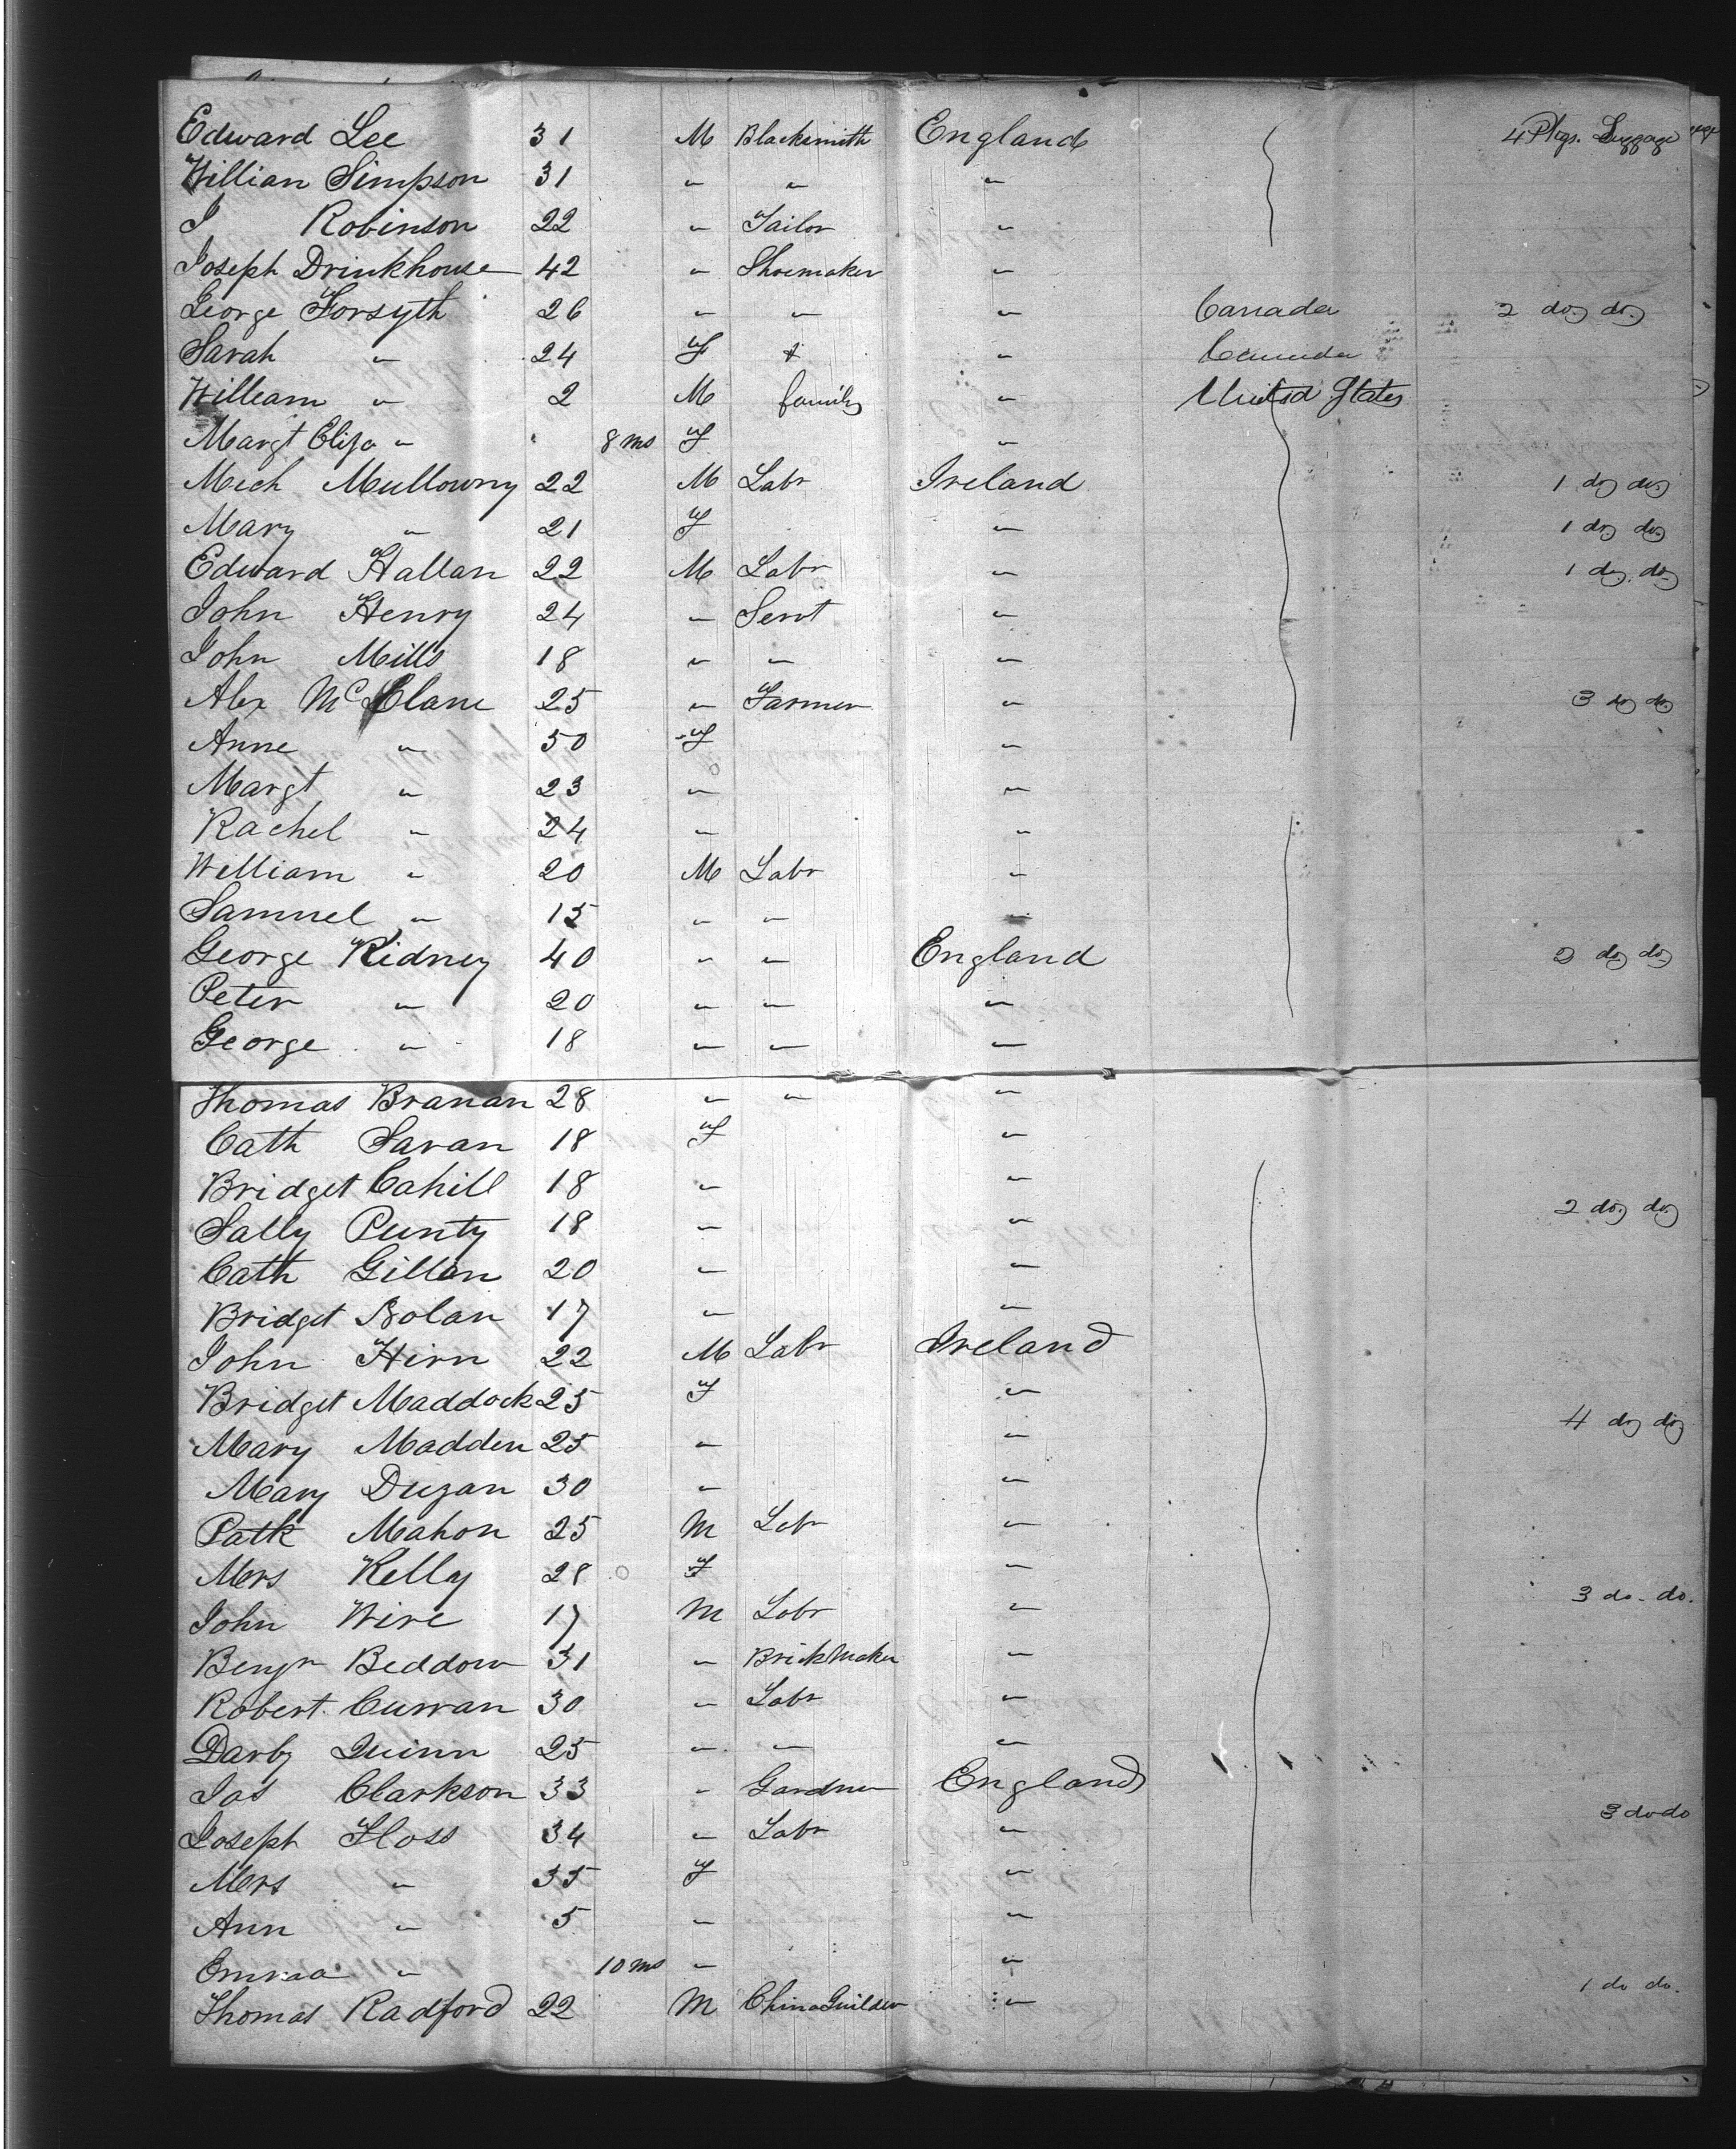 Edward Lee 31 M Blacksmith England 4 Pkgs. Luggage
Willian Simpson 31 " " "
J Robinson 22 " Tailor "
Joseph Drinkhouse 42 " Shoemaker "
George Forsyth 26 " " " Canada 2 do. do.
Sarah " 24 F & " Canada
William " 2 M family " United States
Margt Eliza " 8 ms F "
Mich Mullowny 22 M Labr Ireland 1 do do
Mary " 21 F " 1 do do
Edward Hallan 22 M Labr " 1 do. do
John Henry 24 " Servt "
John Mills 18 " " "
Alex McClane 25 " Farmer " 3 do do
Anne " 50 F "
Margt " 23 " "
Rachel " 24 " "
William " 20 M Labr "
Samuel " 15 " " "
George Kidney 40 " " England 2 do do
Peter " 20 " " "
George " 18 " " "
Thomas Branan 28 " " "
Cath Savan 18 F "
Bridget Cahill 18 " "
Sally Punty 18 " " 2 do do
Cath Gillan 20 " "
Bridget Nolan 17 " "
John Hirn 22 M Labr Ireland
Bridget Maddock 25 F "
Mary Madden 25 " " 4 do do
Mary Dugan 30 " "
Patk Mahon 25 M Labr "
Mrs Kelly 28 F "
John Wire 17 M Labr " 3 do. do.
Benjn Beddow 31 " BrickMaker "
Robert Curran 30 " Labr "
Darby Quinn 25 " " "
Jas Clarkson 33 " Gardner England
Joseph Floss 34 " Labr " 3 do do
Mrs " 35 F "
Ann " 5 " "
Emma " 10 ms " "
Thomas Radford 22 M China Guilder " 1 do do.